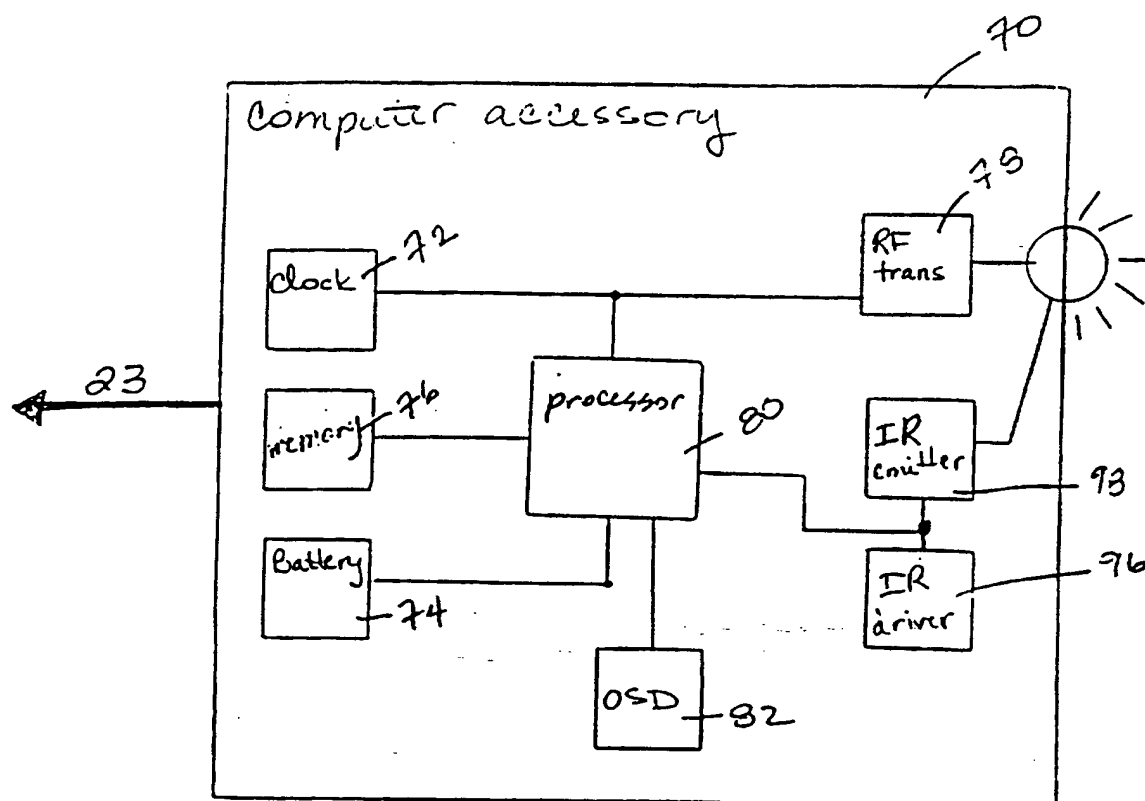 70
computer accessory
clock
72
RF
trans
23
memory
76
processor
80
IR
emitter
93
Battery
74
IR
driver
96
OSD